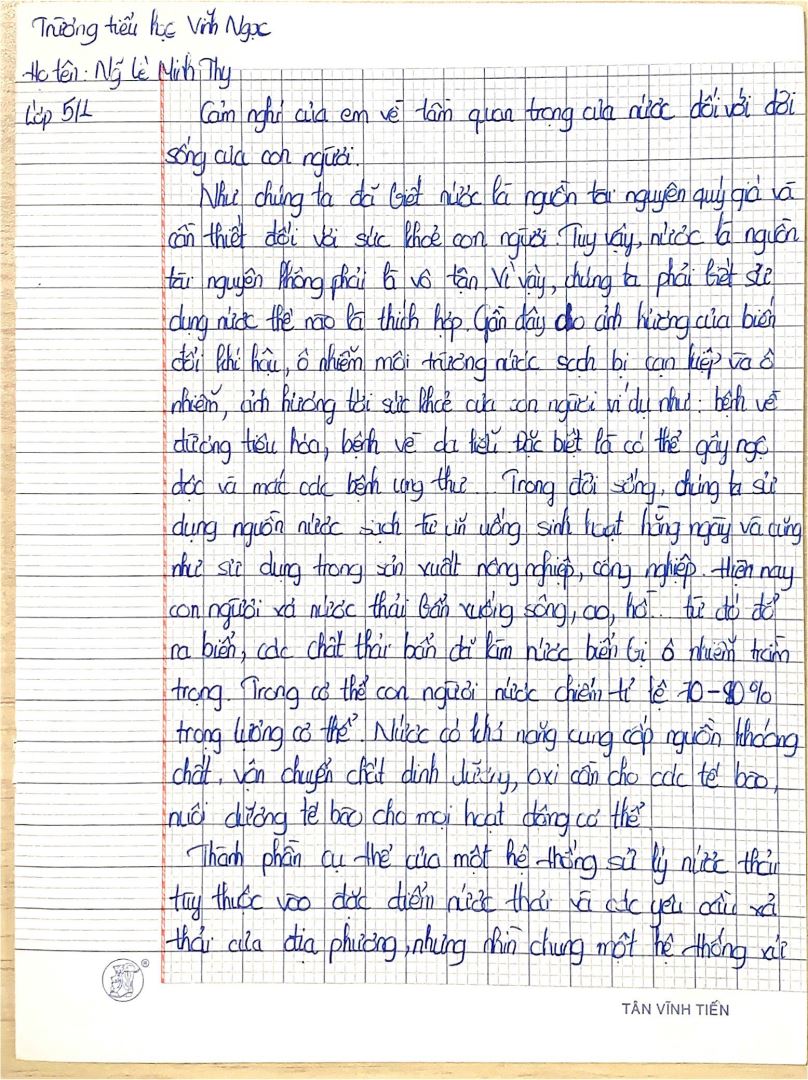 Trường tiểu học Vĩnh Ngọc
Họ tên: Ng̃ Lê Minh Thy
Lớp 5/1
Cảm nghĩ của em về tầm quan trọng của nước đối với đời
sống của con người.
Như chúng ta đã biết nước là nguồn tài nguyên quý giá và
cần thiết đối với sức khoẻ con người. Tuy vậy, nước là nguồn
tài nguyên không phải là vô tận Vì vậy, chúng ta phải biết sử
dụng nước thế nào là thích hợp. Gần đây do ảnh hưởng của biến
đổi khí hậu, ô nhiễm môi trường nước sạch bị cạn kiệp và ô
nhiễm, ảnh hưởng tới sức khoẻ của con người ví dụ như: bệnh về
đường tiêu hóa, bệnh về da liễu Đặc biệt là có thể gây ngộ
độc và mắt các bệnh ung thư... Trong đời sống, chúng ta sử
dụng nguồn nước sạch từ ăn uống sinh hoạt hằng ngày và cũng
như sử dụng trong sản xuất nông nghiệp, công nghiệp. Hiện nay
con người xả nước thải bẩn xuống sông, ao, hồ... từ đó đổ
ra biển, các chất thải bẩn đã làm nước biển bị ô nhiễm trầm
trọng. Trong cơ thể con người nước chiếm tỉ lệ 70-80%
trọng lượng cơ thể. Nước có khả năng cung cấp nguồn khoáng
chất, vận chuyển chất dinh dưỡng, oxi cần cho các tế bào,
nuôi dưỡng tế bào cho mọi hoạt động cơ thể.
Thành phần cụ thể của một hệ thống sử lý nước thải
tùy thuộc vào đặc điểm nước thải và các yêu cầu xả
thải của địa phương, nhưng nhìn chung một hệ thống xử
TÂN VĨNH TIẾN